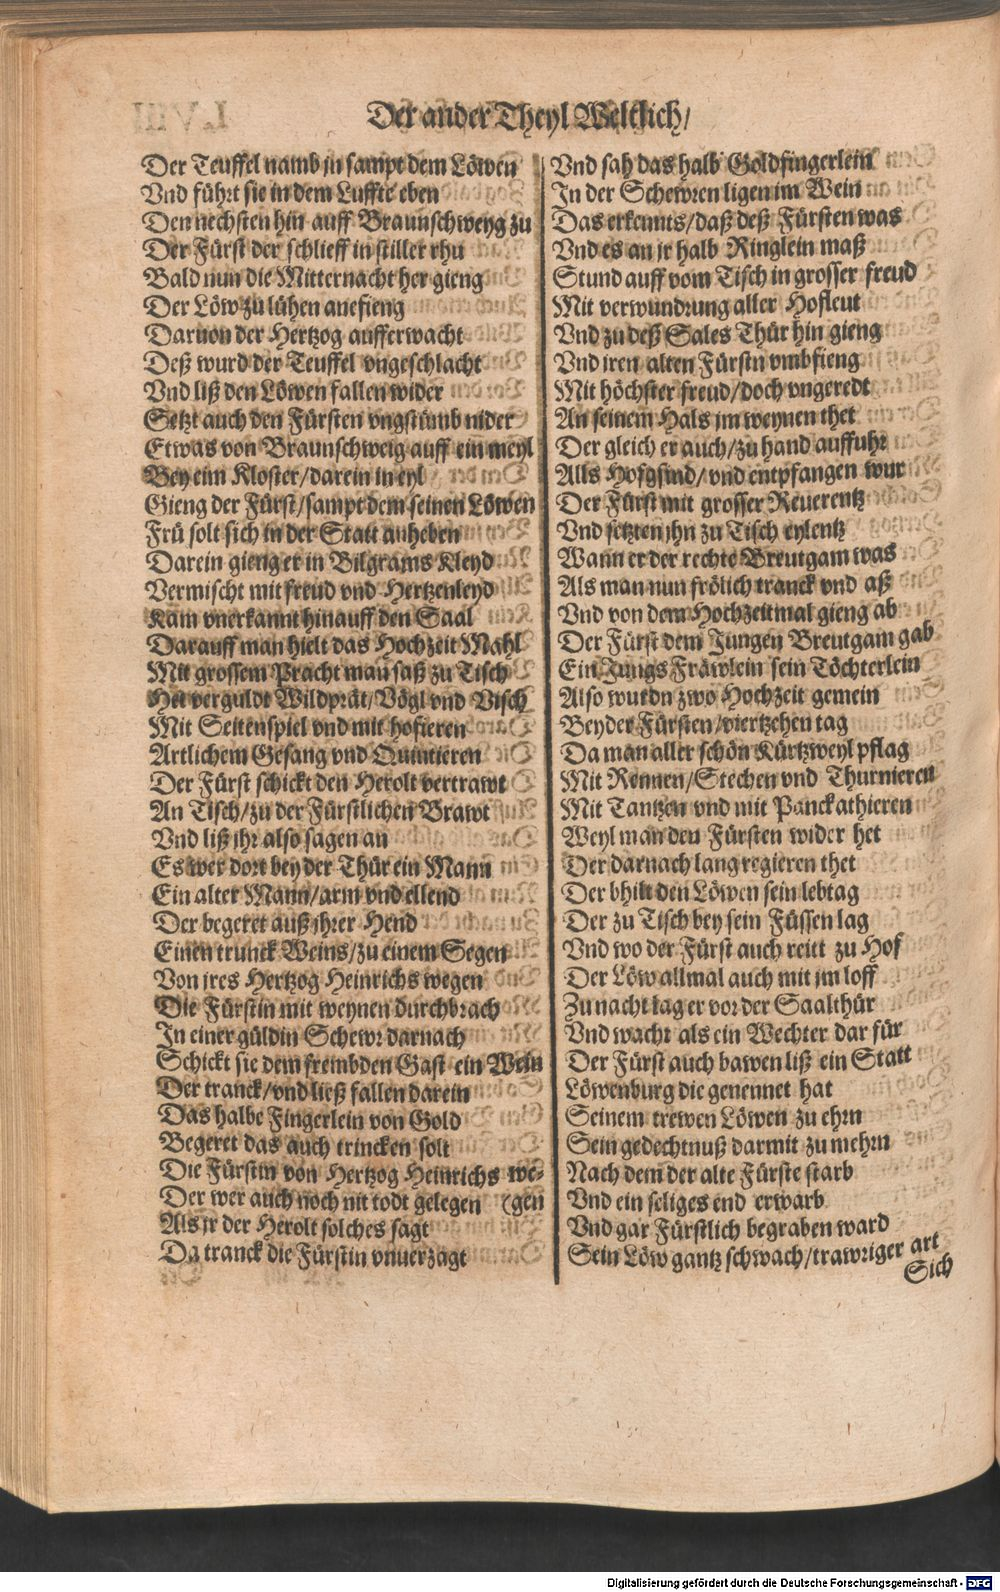 Der ander Theyl Weltlich/
Der Teuffel namb jn sampt dem Löwen
Vnd führt sie in dem Luffte eben
Den nechsten hin auff Braunschweyg zu
Der Fürst der schlieff in stiller rhu
Bald nun die Mitternacht her gieng
Der Löw zu lühen anefieng
Daruon der Hertzog aufferwacht
Deß wurd der Teuffel vngeschlacht
Vnd liß den Löwen fallen wider
Setzt auch den Fürsten vngstümb nider
Etwas von Braunschweig auff ein meyl
Bey eim Kloster/darein in eyl
Gieng der Fürst/sampt dem seinen Löwen
Frü solt sich in der Statt anheben
Darein gieng er in Bilgrams Kleyd
Vermischt mit freud vnd Hertzenleyd
Kam vnerkannt hinauff den Saal
Darauff man hielt das Hochzeit Mahl
Mit grossem Pracht man saß zu Tisch
Het verguldt Wildprät/Vögl vnd Visch
Mit Seitenspiel vnd mit hofieren
Artlichem Gesang vnd Quintieren
Der Fürst schickt den Herolt vertrawt
An Tisch/zu der Fürstlichen Brawt
Vnd liß jhr also sagen an
Es wer dort bey der Thür ein Mann
Ein alter Mann/arm vnd ellend
Der begeret auß jhrer Hend
Einen trunck Weins/zu einem Segen
Von jres Hertzog Heinrichs wegen
Die Fürstin mit weynen durchbrach
In einer güldin Schewr darnach
Schickt sie dem frembden Gast ein Wein
Der tranck/vnd ließ fallen darein
Das halbe Fingerlein von Gold
Begeret das auch trincken solt
Die Fürstin von Hertzog Heinrichs we-
Der wer auch noch nit todt gelegen (gen
Als jr der Herolt solches sagt
Da tranck die Fürstin vnuerzagt
Vnd sah das halb Goldfingerlein
In der Schewren ligen im Wein
Das erkennts/daß deß Fürsten was
Vnd es an jr halb Ringlein maß
Stund auff vom Tisch in grosser freud
Mit verwundrung aller Hofleut
Vnd zu deß Sales Thür hin gieng
Vnd iren alten Fürstn vmbfieng
Mit höchster freud/doch vngeredt
An seinem Hals jm weynen thet
Der gleich er auch/zu hand auffuhr
Alls Hofgsind/vnd entpfangen wur
Der Fürst mit grosser Reuerentz
Vnd setzten jhn zu Tisch eylentz
Wann er der rechte Breutgam was
Als man nun frölich tranck vnd aß
Vnd von dem Hochzeitmal gieng ab
Der Fürst dem Jungen Breutgam gab
Ein Jungs Fräwlein sein Töchterlein
Also wurdn zwo Hochzeit gemein
Beyder Fürsten/viertzehen tag
Da man aller schön Kürtzweyl pflag
Mit Rennen/Stechen vnd Thurnieren
Mit Tantzen vnd mit Panckathieren
Weyl man den Fürsten wider het
Der darnach lang regieren thet
Der bhilt den Löwen sein lebtag
Der zu Tisch bey sein Füssen lag
Vnd wo der Fürst auch reitt zu Hof
Der Löw allmal auch mit jm loff
Zu nacht lag er vor der Saalthür
Vnd wacht als ein Wechter dar für
Der Fürst auch bawen liß ein Statt
Löwenburg die genennet hat
Seinem trewen Löwen zu ehrn
Sein gedechtnuß darmit zu mehrn
Nach dem der alte Fürste starb
Vnd ein seliges end erwarb
Vnd gar Fürstlich begraben ward
Sein Löw gantz schwach/trawriger art
Sich
Digitalisierung gefördert durch die Deutsche Forschungsgemeinschaft - DFG